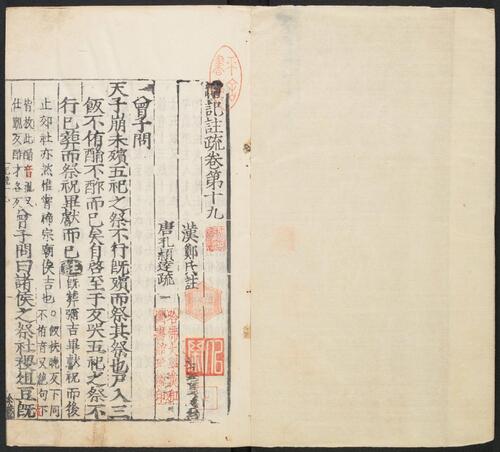 禮記註疏卷第十九
漢鄭氏註
唐孔穎達疏
曾子問
天子崩未殯五祀之祭不行既殯而祭其祭也尸入三
飯不侑酳不酢而已矣自啓至于反哭五祀之祭不
行已葬而祭祝畢獻而已註既葬彌吉畢獻祝而後
止郊社亦然惟嘗禘宗廟俟吉也○飯扶晚反下同
不侑音又絶句下
皆放此酳音胤又
仕覲反酢才各反曾子問曰諸侯之祭社稷俎豆既